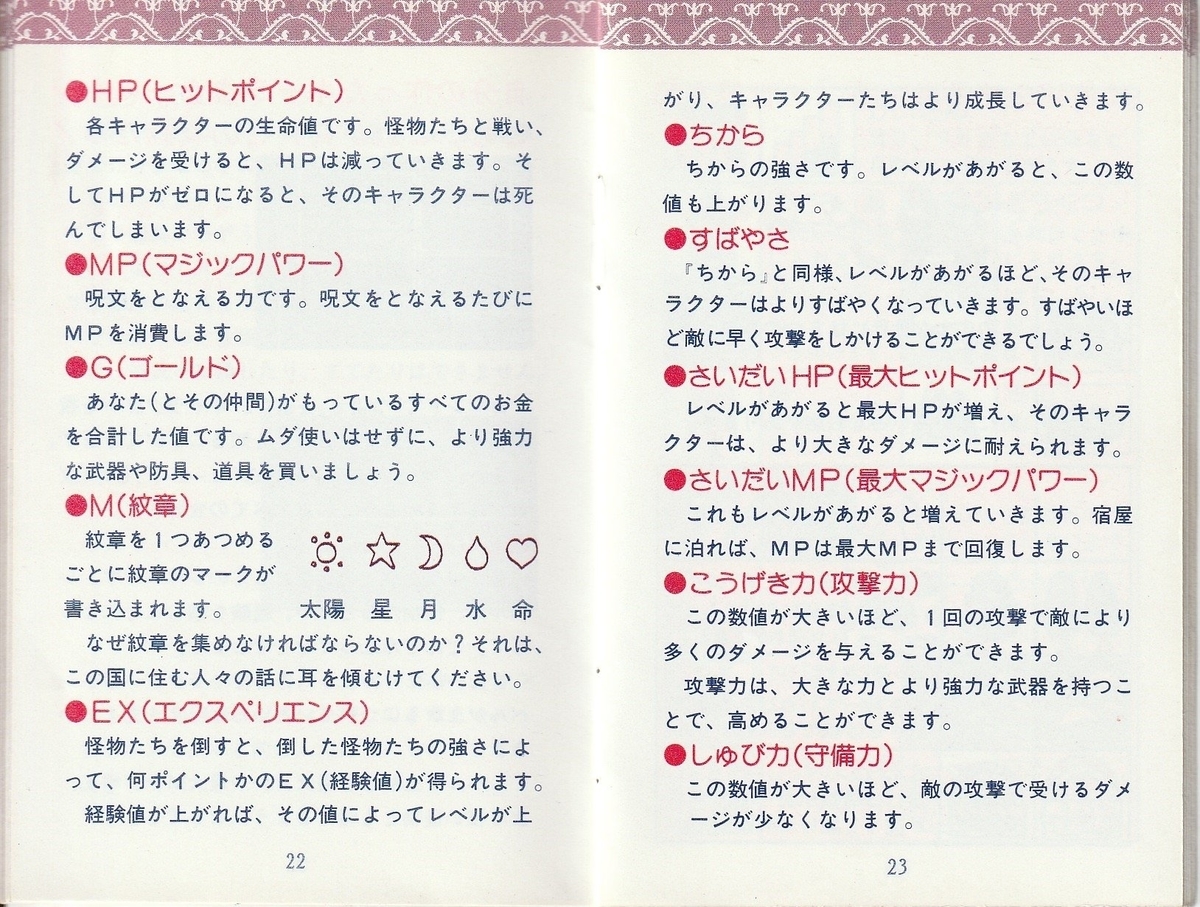 ●HP(ヒットポイント)
各キャラクターの生命値です。怪物たちと戦い、
ダメージを受けると、HPは減っていきます。そ
してHPがゼロになると、そのキャラクターは死
んでしまいます。
●MP(マジックパワー)
呪文をとなえる力です。呪文をとなえるたびに
MPを消費します。
●G(ゴールド)
あなた(とその仲間)がもっているすべてのお金
を合計した値です。ムダ使いはせずに、より強力
な武器や防具、道具を買いましょう。
●M(紋章)
紋章を1つあつめる
ごとに紋章のマークが
書き込まれます。
太陽 星 月 水 命
なぜ紋章を集めなければならないのか?それは、
この国に住む人々の話に耳を傾むけてください。
●EX(エクスペリエンス)
怪物たちを倒すと、倒した怪物たちの強さによ
って、何ポイントかのEX(経験値)が得られます。
経験値が上がれば、その値によってレベルが上
22
がり、キャラクターたちはより成長していきます。
●ちから
ちからの強さです。レベルがあがると、この数
値も上がります。
●すばやさ
『ちから』と同様、レベルがあがるほど、そのキャ
ラクターはよりすばやくなっていきます。すばやいほ
ど敵に早く攻撃をしかけることができるでしょう。
●さいだいHP(最大ヒットポイント)
レベルがあがると最大HPが増え、そのキャラ
クターは、より大きなダメージに耐えられます。
●さいだいMP(最大マジックパワー)
これもレベルがあがると増えていきます。宿屋
に泊れば、MPは最大MPまで回復します。
●こうげき力(攻撃力)
この数値が大きいほど、1回の攻撃で敵により
多くのダメージを与えることができます。
攻撃力は、大きな力とより強力な武器を持つこ
とで、高めることができます。
●しゅび力(守備力)
この数値が大きいほど、敵の攻撃で受けるダメ
ージが少なくなります。
23